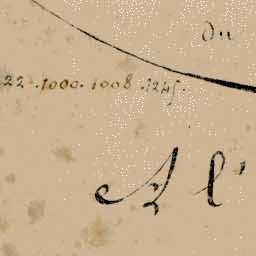 Du
22 . 1000 . 1008 . 1245 .
A l'